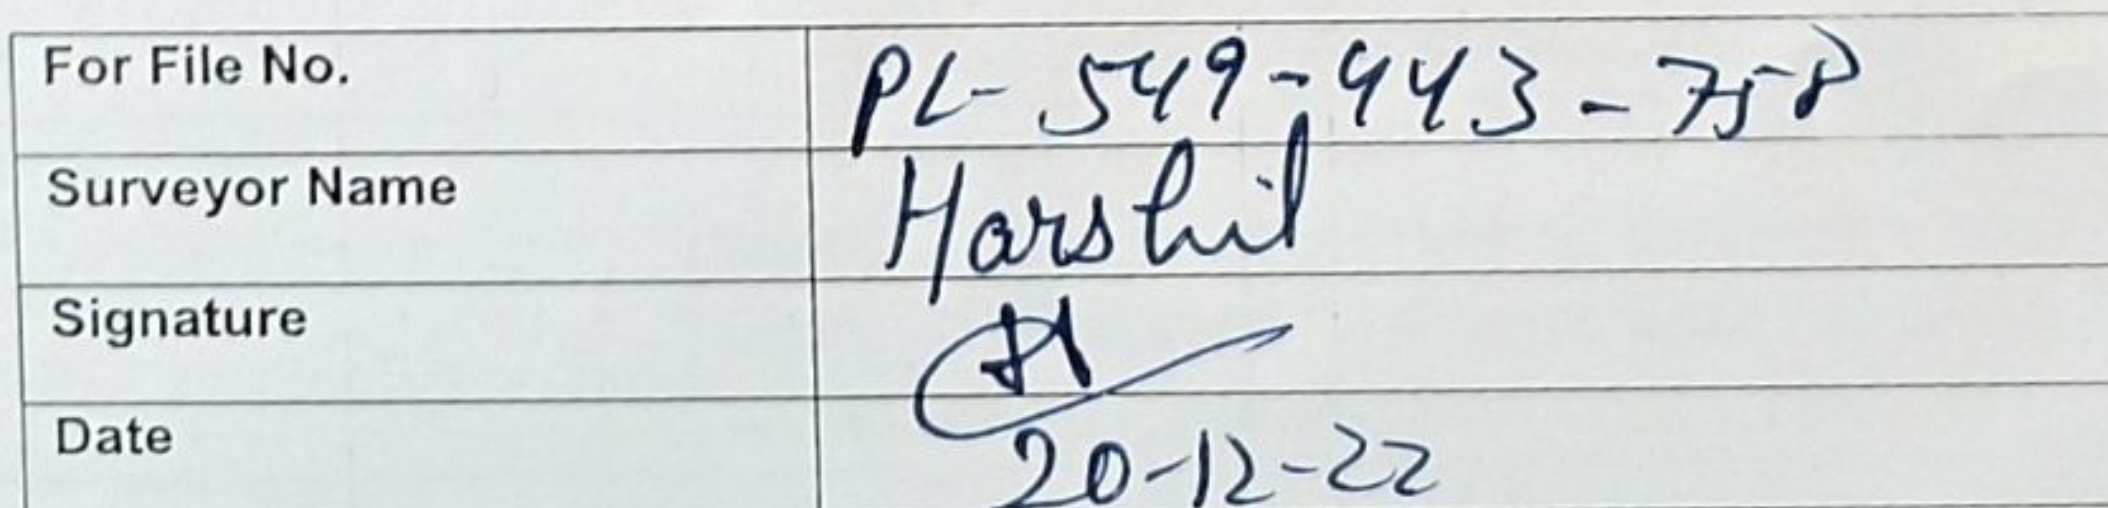 For File No. PL- 549-443-758
Surveyor Name Harshil
Signature
Date 20-12-22